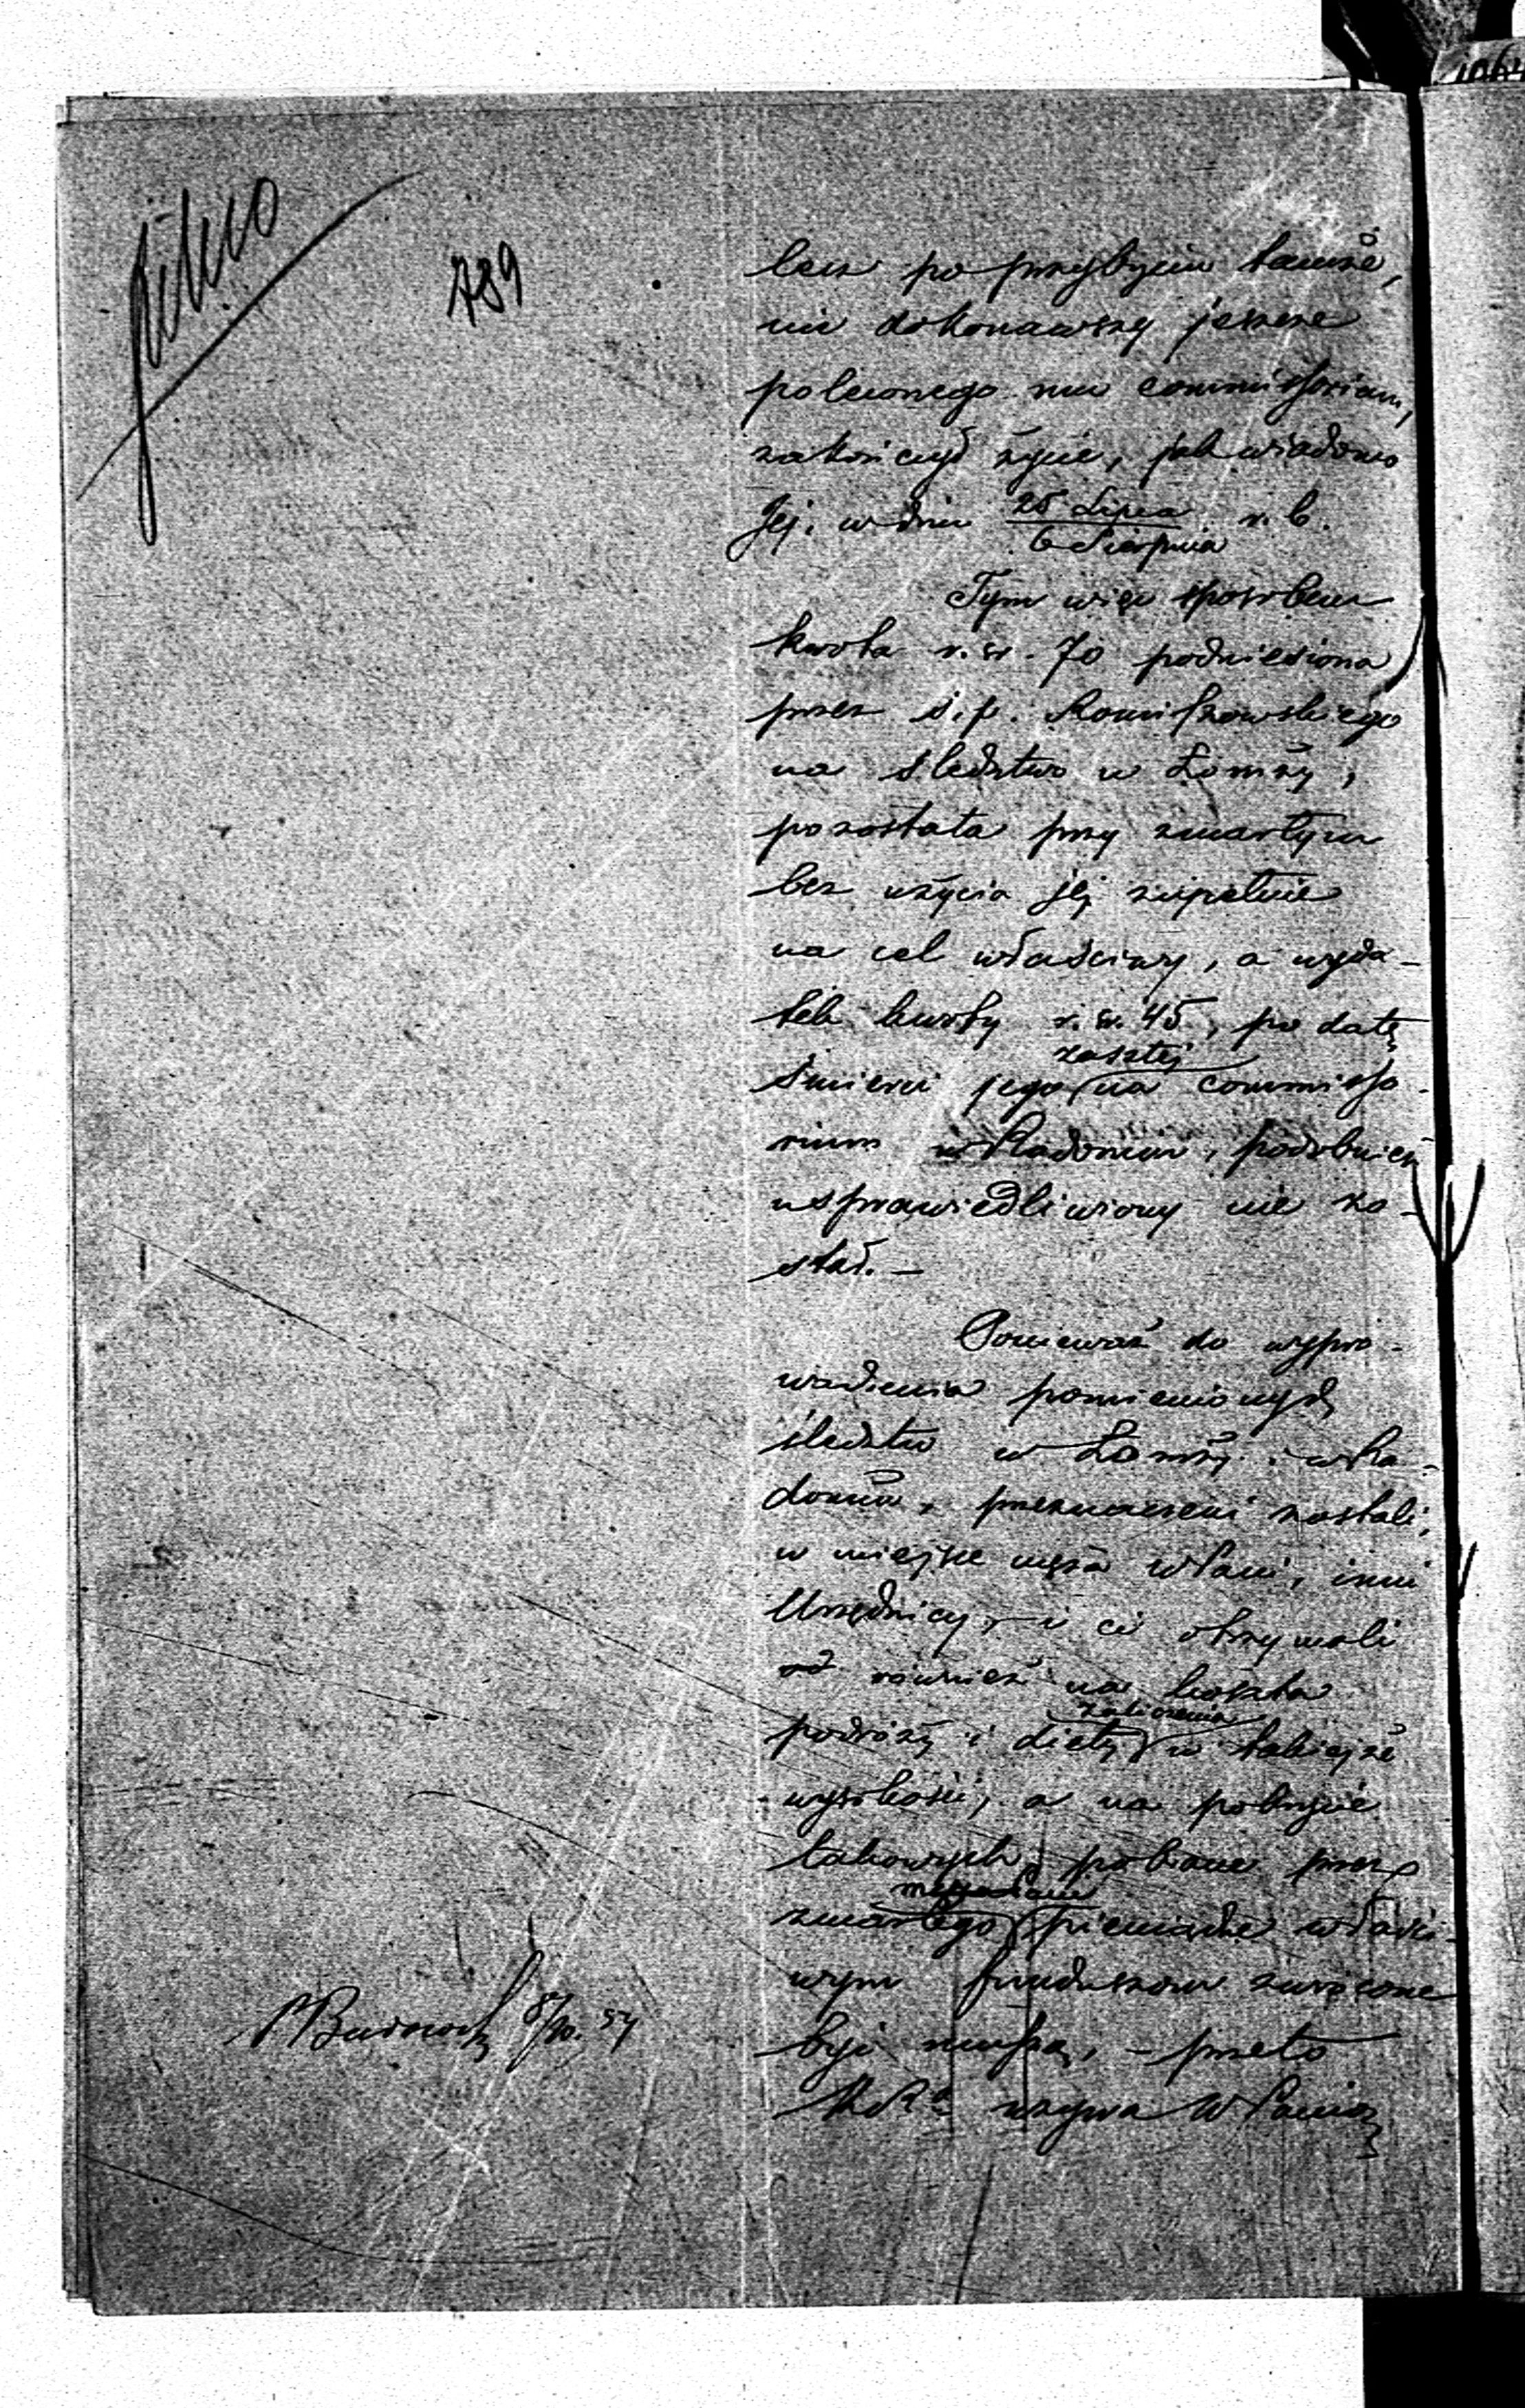 789
lecz po przybyciu tamże,
nie dokonawszy jeszcze
poleconego mu commissorium,
zakończył życie, jak wiadomo
Jej, w dniu 25 Lipca / 6 Sierpnia r. b.
Tym więc sposobem
kwota r. sr. 70 podniesiona
przez ś. p. Romiszowskiego
na śledztwo w Łomży,
pozostała przy zmarłym
bez użycia jej zupełnie
na cel właściwy, a wyda-
tek kwoty r. sr. 45, po datę
zaszłej
śmierci jego na commisso-
rium w Radomiu, podobnież
usprawiedliwiony nie zo-
stał. —
Ponieważ do wypro-
wadzenia pomienionych
śledztw w Łomży i w Ra-
domiu, przeznaczeni zostali,
w miejsce męża WPani, inni
Urzędnicy, i ci otrzymali
również na koszta
zaliczenia
podróży i diety w takiejże
wysokości, a na pokrycie
takowych, pobrane przez
zmarłego pieniądze właści-
wym funduszom zwrócone
być muszą, — przeto
wzywa WPanią